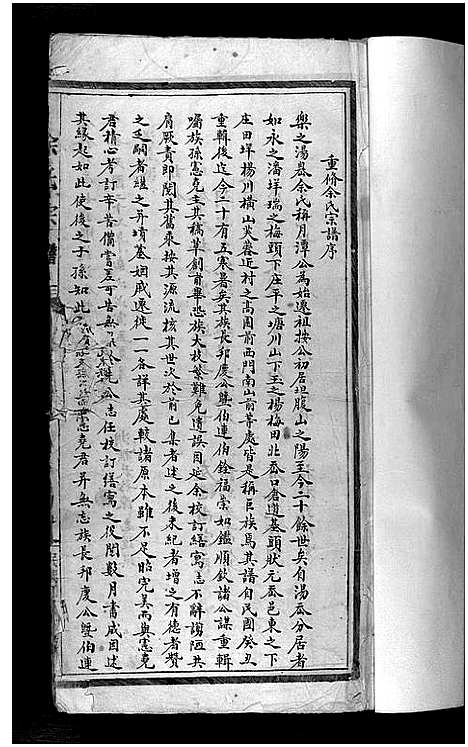 重修余氏宗譜序
樂之湯岙余氏稱月潭公為始遷祖按公初居坦腹山之陽至今二十餘世矣自湯岙分居者
如永之潘垟瑞之梅頭下庄平之塘川山下玉之楊梅田北岙口耆道基頭狀元岙邑東之下
庄田垟楊川橫山芙蓉近村之高園前西門南山前等處皆是稱巨族焉其譜自民國癸丑
重輯後迄今二十有五寒暑矣其族長邦慶公暨伯連伯銓福崇如鑑順欽諸公謀重輯
囑族孫憲堯主其稿草創甫畢恐族大枝繁難免遺誤因延余校訂繕寫志不辭謭陋共
膺厥責即閱其舊乘按其源流核其世次於前已集者述之後未紀者增之有德者贊
之乏嗣者繼之昇墳墓姻戚遷徙一一各詳其處較諸原本雖不足昭完美而與憲堯
君積心考訂辛苦備嘗差可告無 公志任校訂繕寫之役閱數月書成因述
其緣起如此使後之子孫知此 憲堯君昇無忘族長邦慶公暨伯連